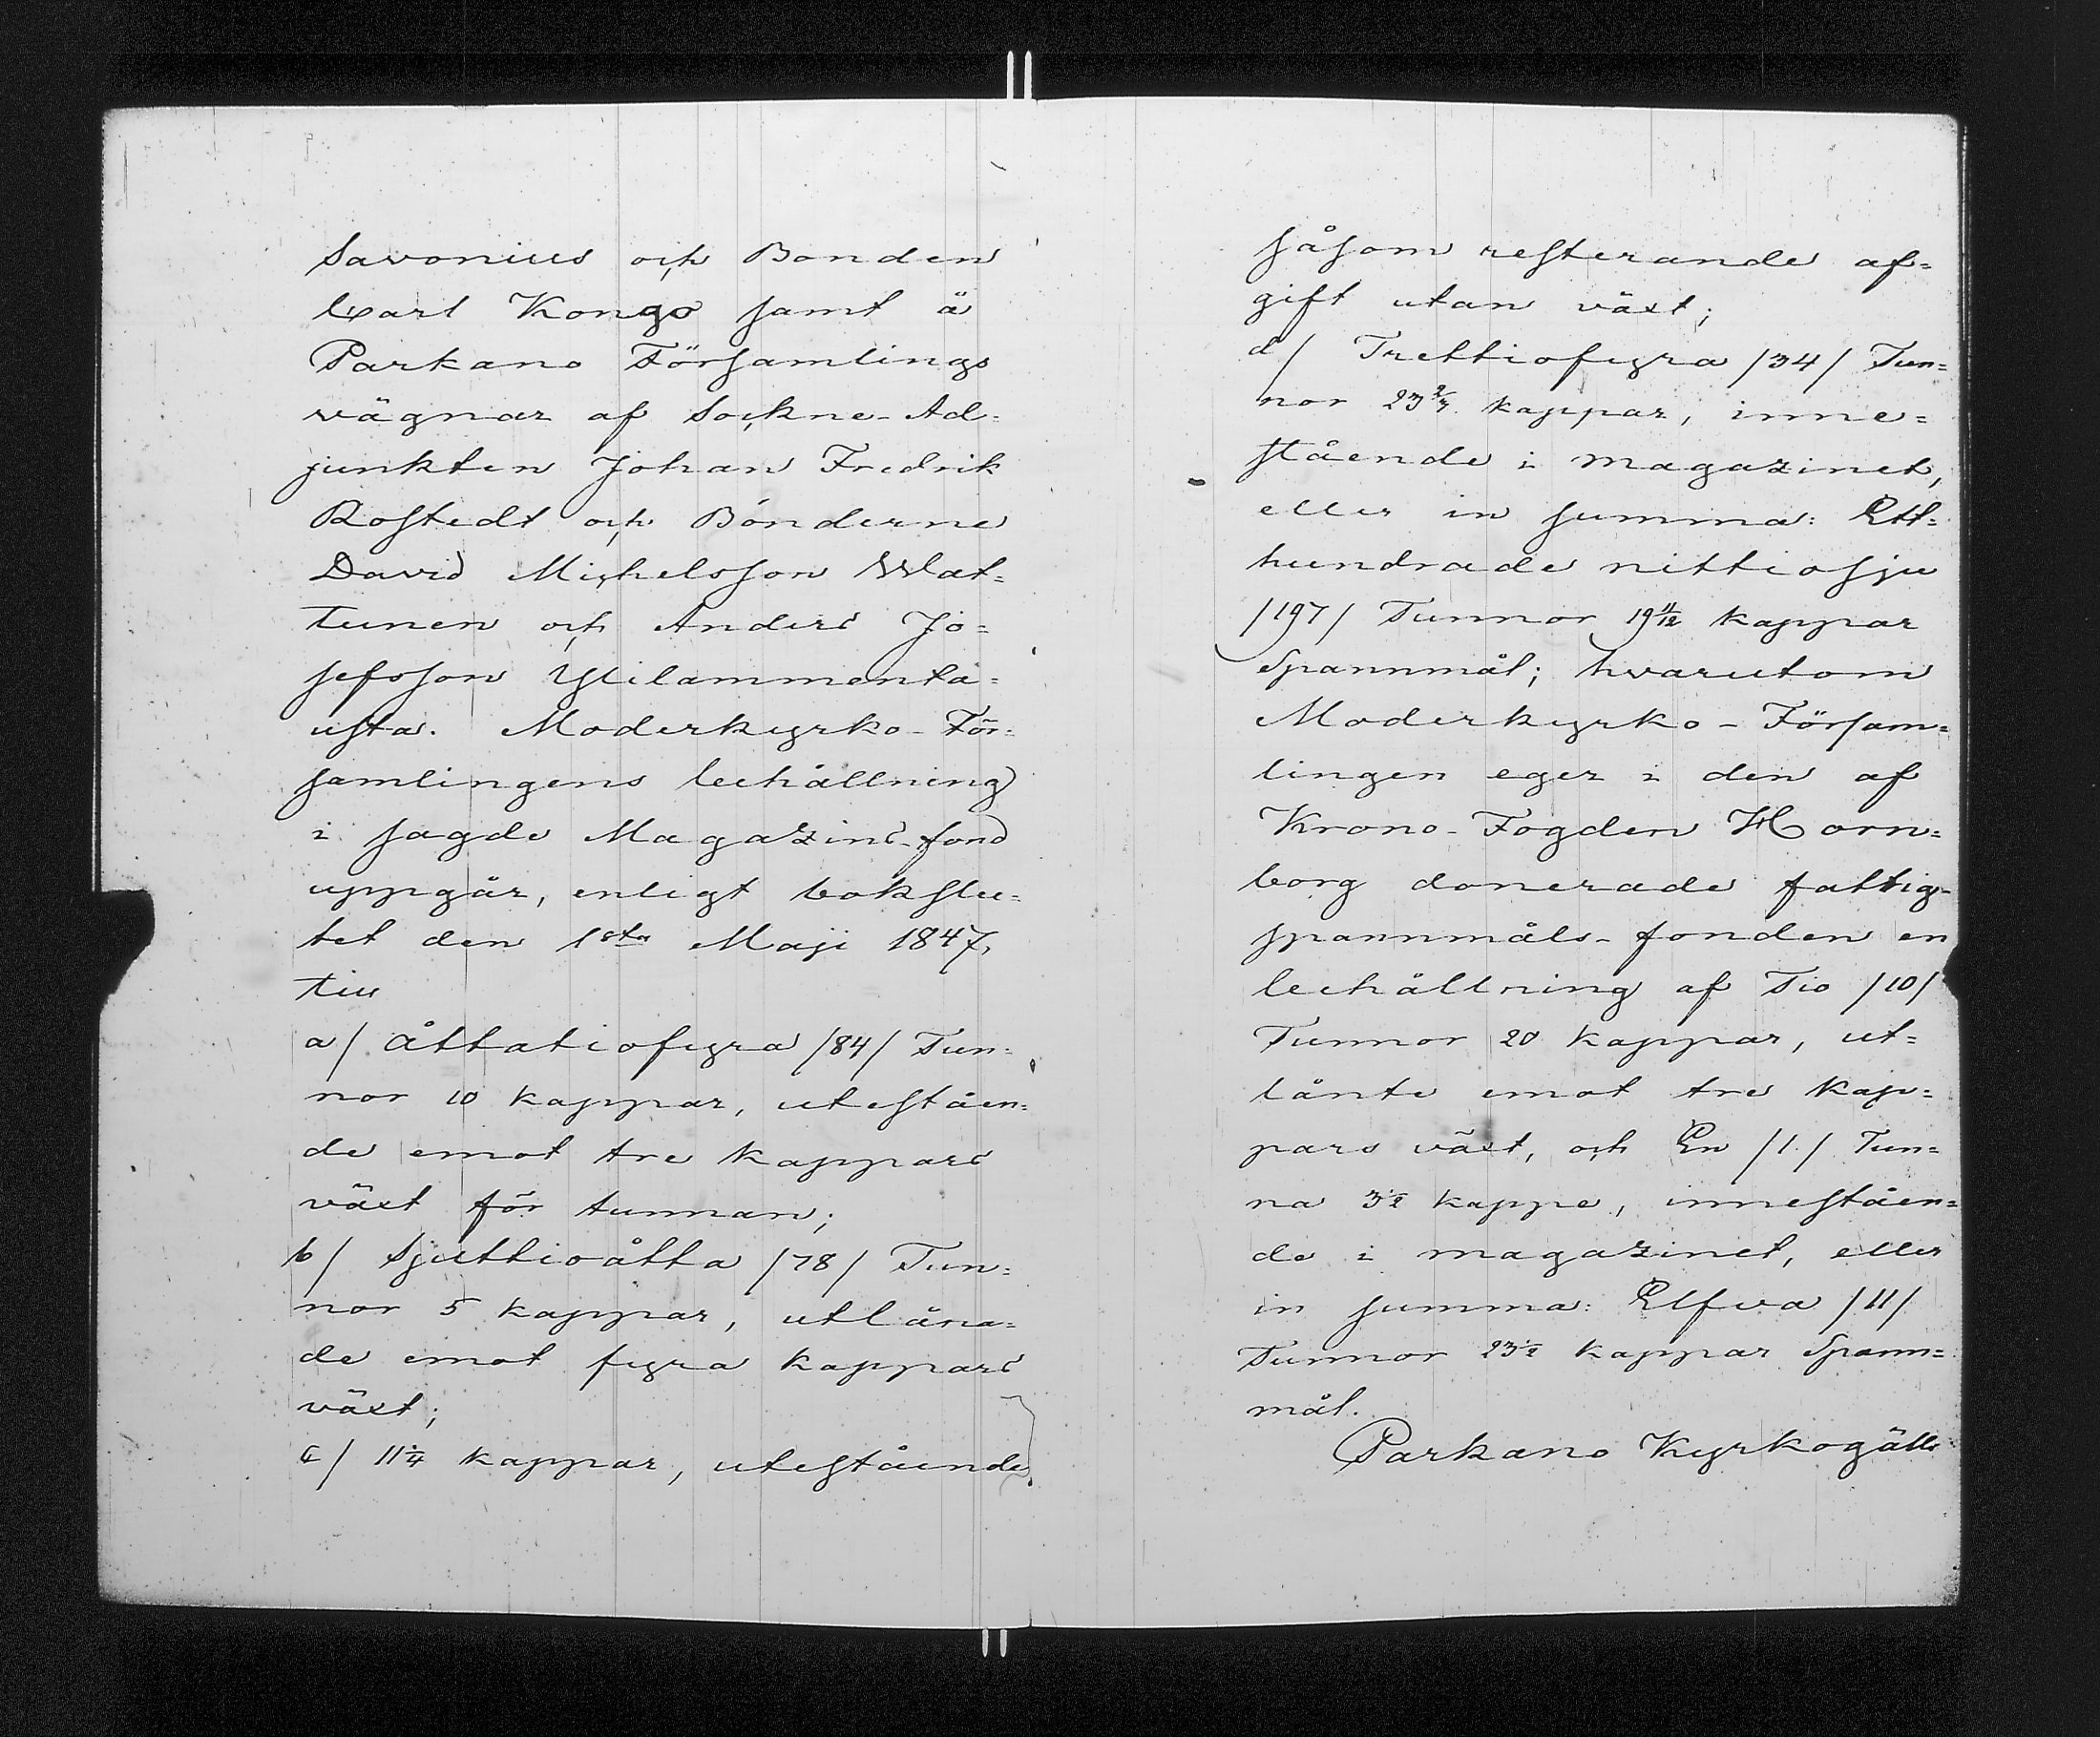 Savonius och Bonden
Carl Kongo samt å
Parkano Församlings
vägnar af Sockne-Ad=
junkten Johan Fredrik
Rostedt och Bönderne
David Michelsson Wat=
tunen och Anders Jo=
sefsson Ylilammenta=
usta. Moderkyrko-För=
samlingens behållning
i sagde Magazins-fond
uppgår, enligt bokslu=
tet den 1sta Maji 1847,
till
a/ Åttatiofyra /84/ Tun=
nor 10 kappar, uteståen=
de emot tre kappars
växt för tunnan;
b/ Sjuttioåtta /78/ Tun=
nor 5 kappar, utlåna=
de emot fyra kappars
växt;
c/ 11 1/4 kappar, utestående
såsom resterande af=
gift utan växt;
d/ Trettiofyra /34/ Tun=
nor 23 2/3 kappar, inne=
stående i magazinet,
eller in summa: Ett=
hundrade nittiosju
/197/ Tunnor 19 11/12 kappar
Spannmål; hvarutom
Moderkyrko-Försam=
lingen eger i den af
Krono-Fogden Horn=
borg donerade fattig-
spannmåls-fonden en
behållning af Tio /10/
Tunnor 20 kappar, ut=
lånte emot tre kap=
pars växt, och En /1/ Tun=
na 3 1/2 kappe, inneståen=
de i magazinet, eller
in summa: Elfva /11/
Tunnor 23 1/2 kappar Spann=
mål.
Parkano Kyrkogälls